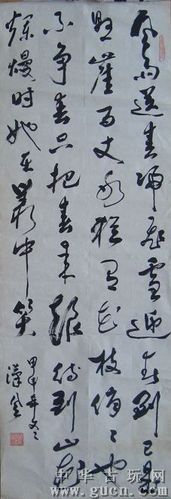 風雨送春归飛雪迎春到已是
懸崖百丈冰犹有花枝俏々也
不争春只把春来报待到山花
烂熳时她在叢中笑
甲申年
中华古玩网
www.gucn.com